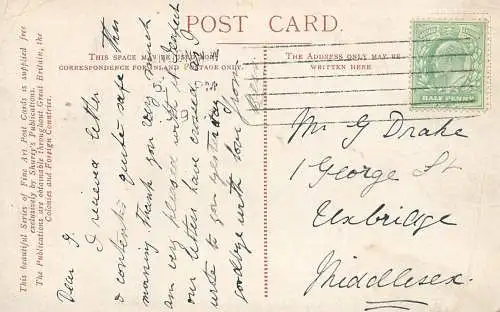 POST CARD
THIS SPACE MAY BE USED FOR
CORRESPONDENCE FOR INLAND POSTAGE ONLY
THE ADDRESS ONLY MAY BE
WRITTEN HERE
HALF PENNY
Mr G Drake
1 George St
Uxbridge
Middlesex
Dear G.
I received letter
& contents quite safe this
morning thank you very much
am very pleased with it
our letters have crossed as I
wrote to you yesterday
goodbye with love from
This beautiful Series of Fine Art Post Cards is supplied free
exclusively by Shurey's Publications.
The Publications are obtainable throughout Great Britain, the
Colonies and Foreign Countries.